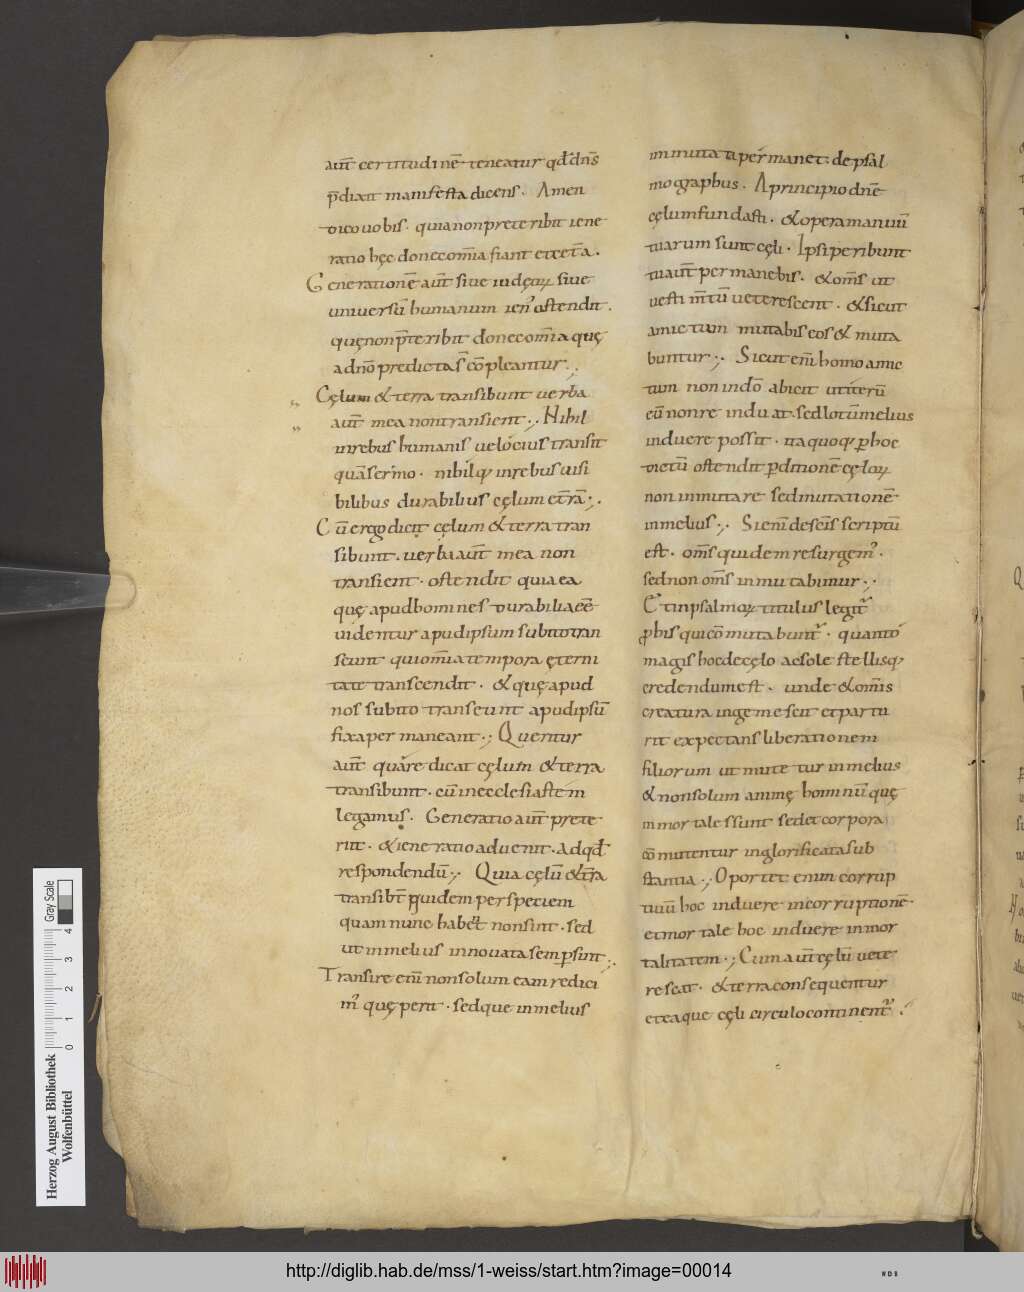 aut̄ certitudinē teneatur qd̄ dn̄s
p̄dixit manifesta dicens. Amen
dico uobis. quia non preteribit gene
ratio hęc donec om̄ia fiant etcet̄a.
Generationē aut̄ siue iudęoꝝ siue
uniuersū humanum gen᾽ ostendit.
quę non p̄teribit donec om̄ia quę
a dn̄o predicta s̄ cōpleantur.,
Cęlum & terra transibunt uerba
aut̄ mea non transient., Nihil
in rebus humanis uelocius transit
quā sermo. nihilq; in rebus uisi
bilibus durabilius cęlum et t̄ra;.
Cū ergo dicit cęlum & terra tran
sibunt. uerba aut̄ mea non
transient. ostendit quia ea
quę apud homines durabilia eē
uidentur apud ipsum subito tran
seunt qui om̄ia tempora ęterni
tate transcendit. & quę apud
nos subito transeunt apud ipsū
fixa permaneant.; Queritur
aut̄ quare dicat cęlum & terra
transibunt. cū in ecclesiasten
legamus. Generatio aut̄ prete
riit. & gene ratio aduenit. Ad qd̄
respondendū;. Quia cęlū & t̄ra
transibt̄ quidem per speciem
quam nunc habet non sunt. sed
ut in melius innouata semꝑ sint;.
Transire eni̅ non solum eam redici
m᾽ quę perit. sed que in melius
inmutata permanet. de psal
mographus. A principio dn̄e
cęlum fundasti. & opera manuū
tuarum sunt cęli. Ipsi peribunt
tu aut̄ permanebis. & om̄s ut
uestim̄tū ueterescent. & sicut
amictum mutabis eos & muta
buntur;. Sicut eni̅ homo amic
tum non in dō abicit ut iterū
eū non re indu at. sed lotū melius
induere possit. ita quoq; ꝑ hoc
dictū ostendit ꝑditionē cęloꝝ
non inmutare sed mutationē
in melius;. Sic eni̅ de sc̄is scriptū
est. om̄s quidem resurgem᾽.
sed non om̄s inmutabimur;.
Et in psalmoꝝ titulus legit᾽
ꝓ his qui cōmutabunt᾽. quanto
magis hoc de cęlo ac sole stellisq;
credendum est. unde & omnis
creatura ingemescit et partu
rit expectans liberationem
filiorum ut mutetur in melius
& non solum animę hominū quę
inmortales sunt sed et corpora
cōmutentur in glorificata sub
stantia.; Oportet enim corrup
tiuū hoc induere incorruptionē
et mortale hoc induere inmor
talitatem.; Cum aut̄ cęlū uete
rescat. & terra consequentur
et ea que cęli circulo continent᾽.
Herzog August Bibliothek
Wolfenbüttel
0 1 2 3 4
Gray Scale
http://diglib.hab.de/mss/1-weiss/start.htm?image=00014